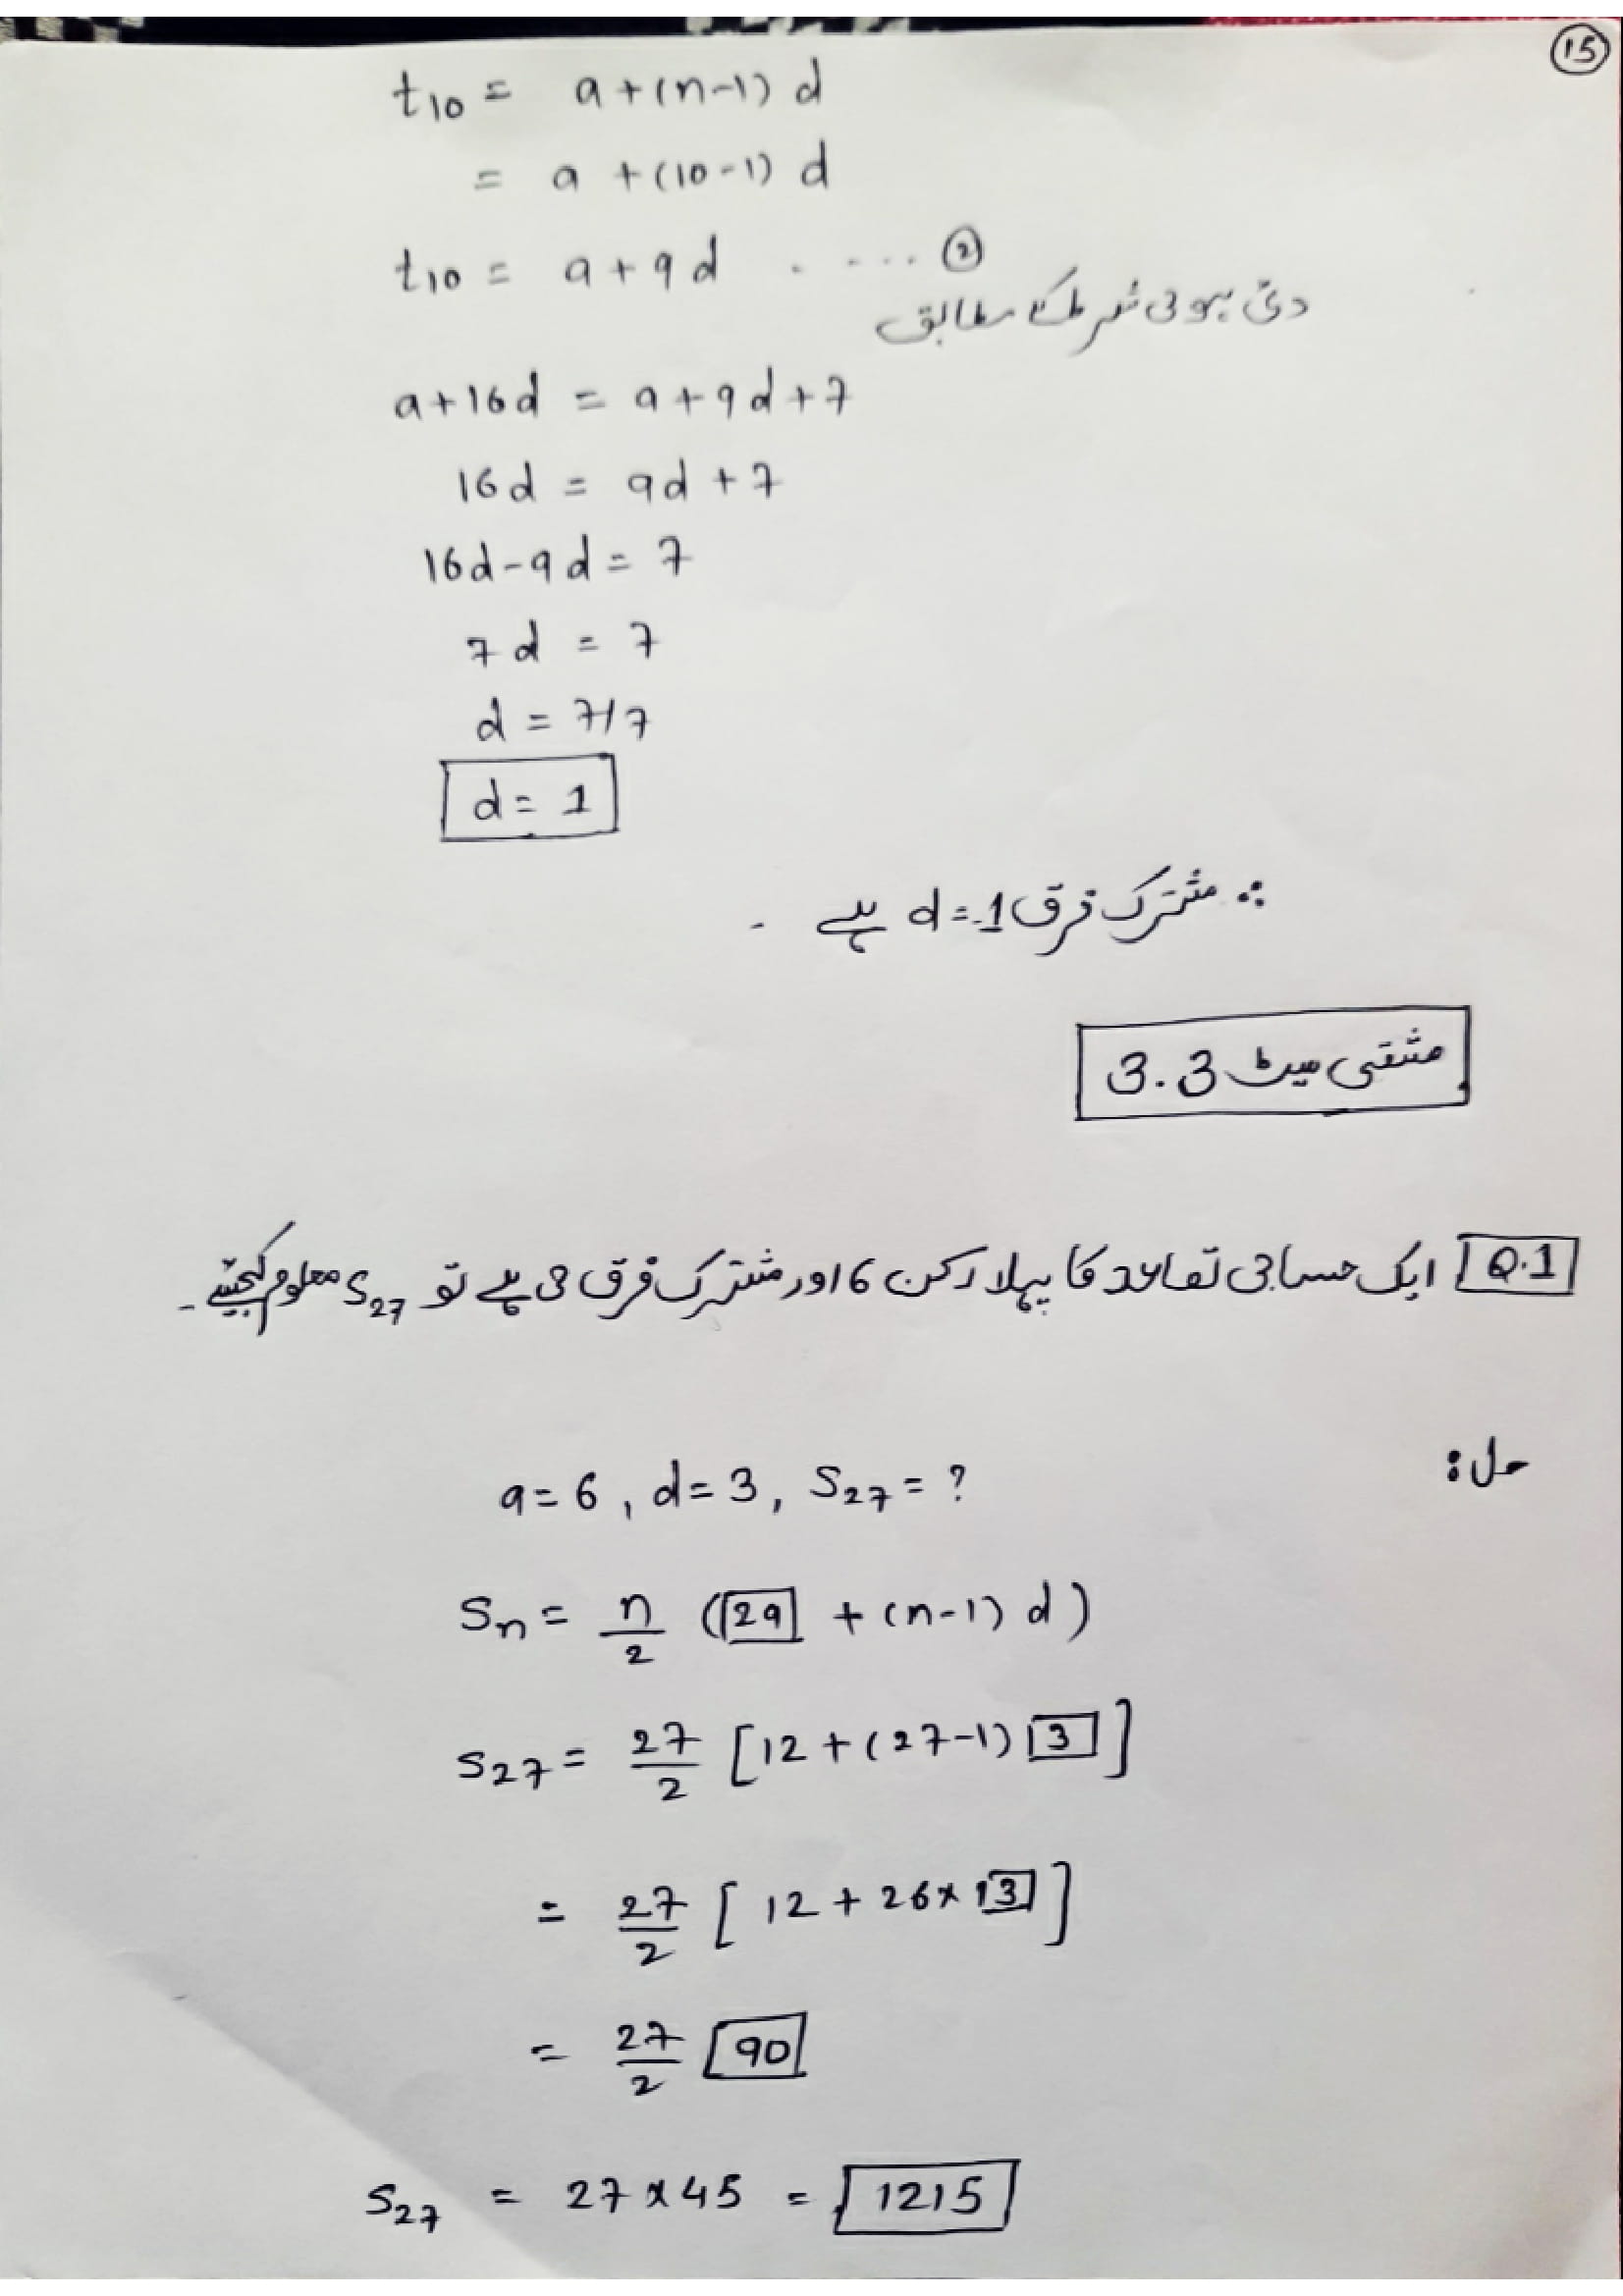 15
t10 = a+(n-1) d
= a +(10-1) d
t10 = a+9d . .... 2
دی ہوئی شرط کے مطابق
a+16d = a+9d+7
16d = 9d+7
16d-9d = 7
7d = 7
d = 7/7
d = 1
∴ مشترک فرق d=1 ہے ۔
مشقی سیٹ 3.3
Q.1 ایک حسابی تصاعد کا پہلا رکن 6 اور مشترک فرق 3 ہے تو S27 معلوم کیجیئے ۔
حل:
a=6, d=3, S27=?
Sn = n/2 (2a + (n-1) d)
S27 = 27/2 [12+(27-1) 3]
= 27/2 [12+26×3]
= 27/2 90
S27 = 27×45 = 1215